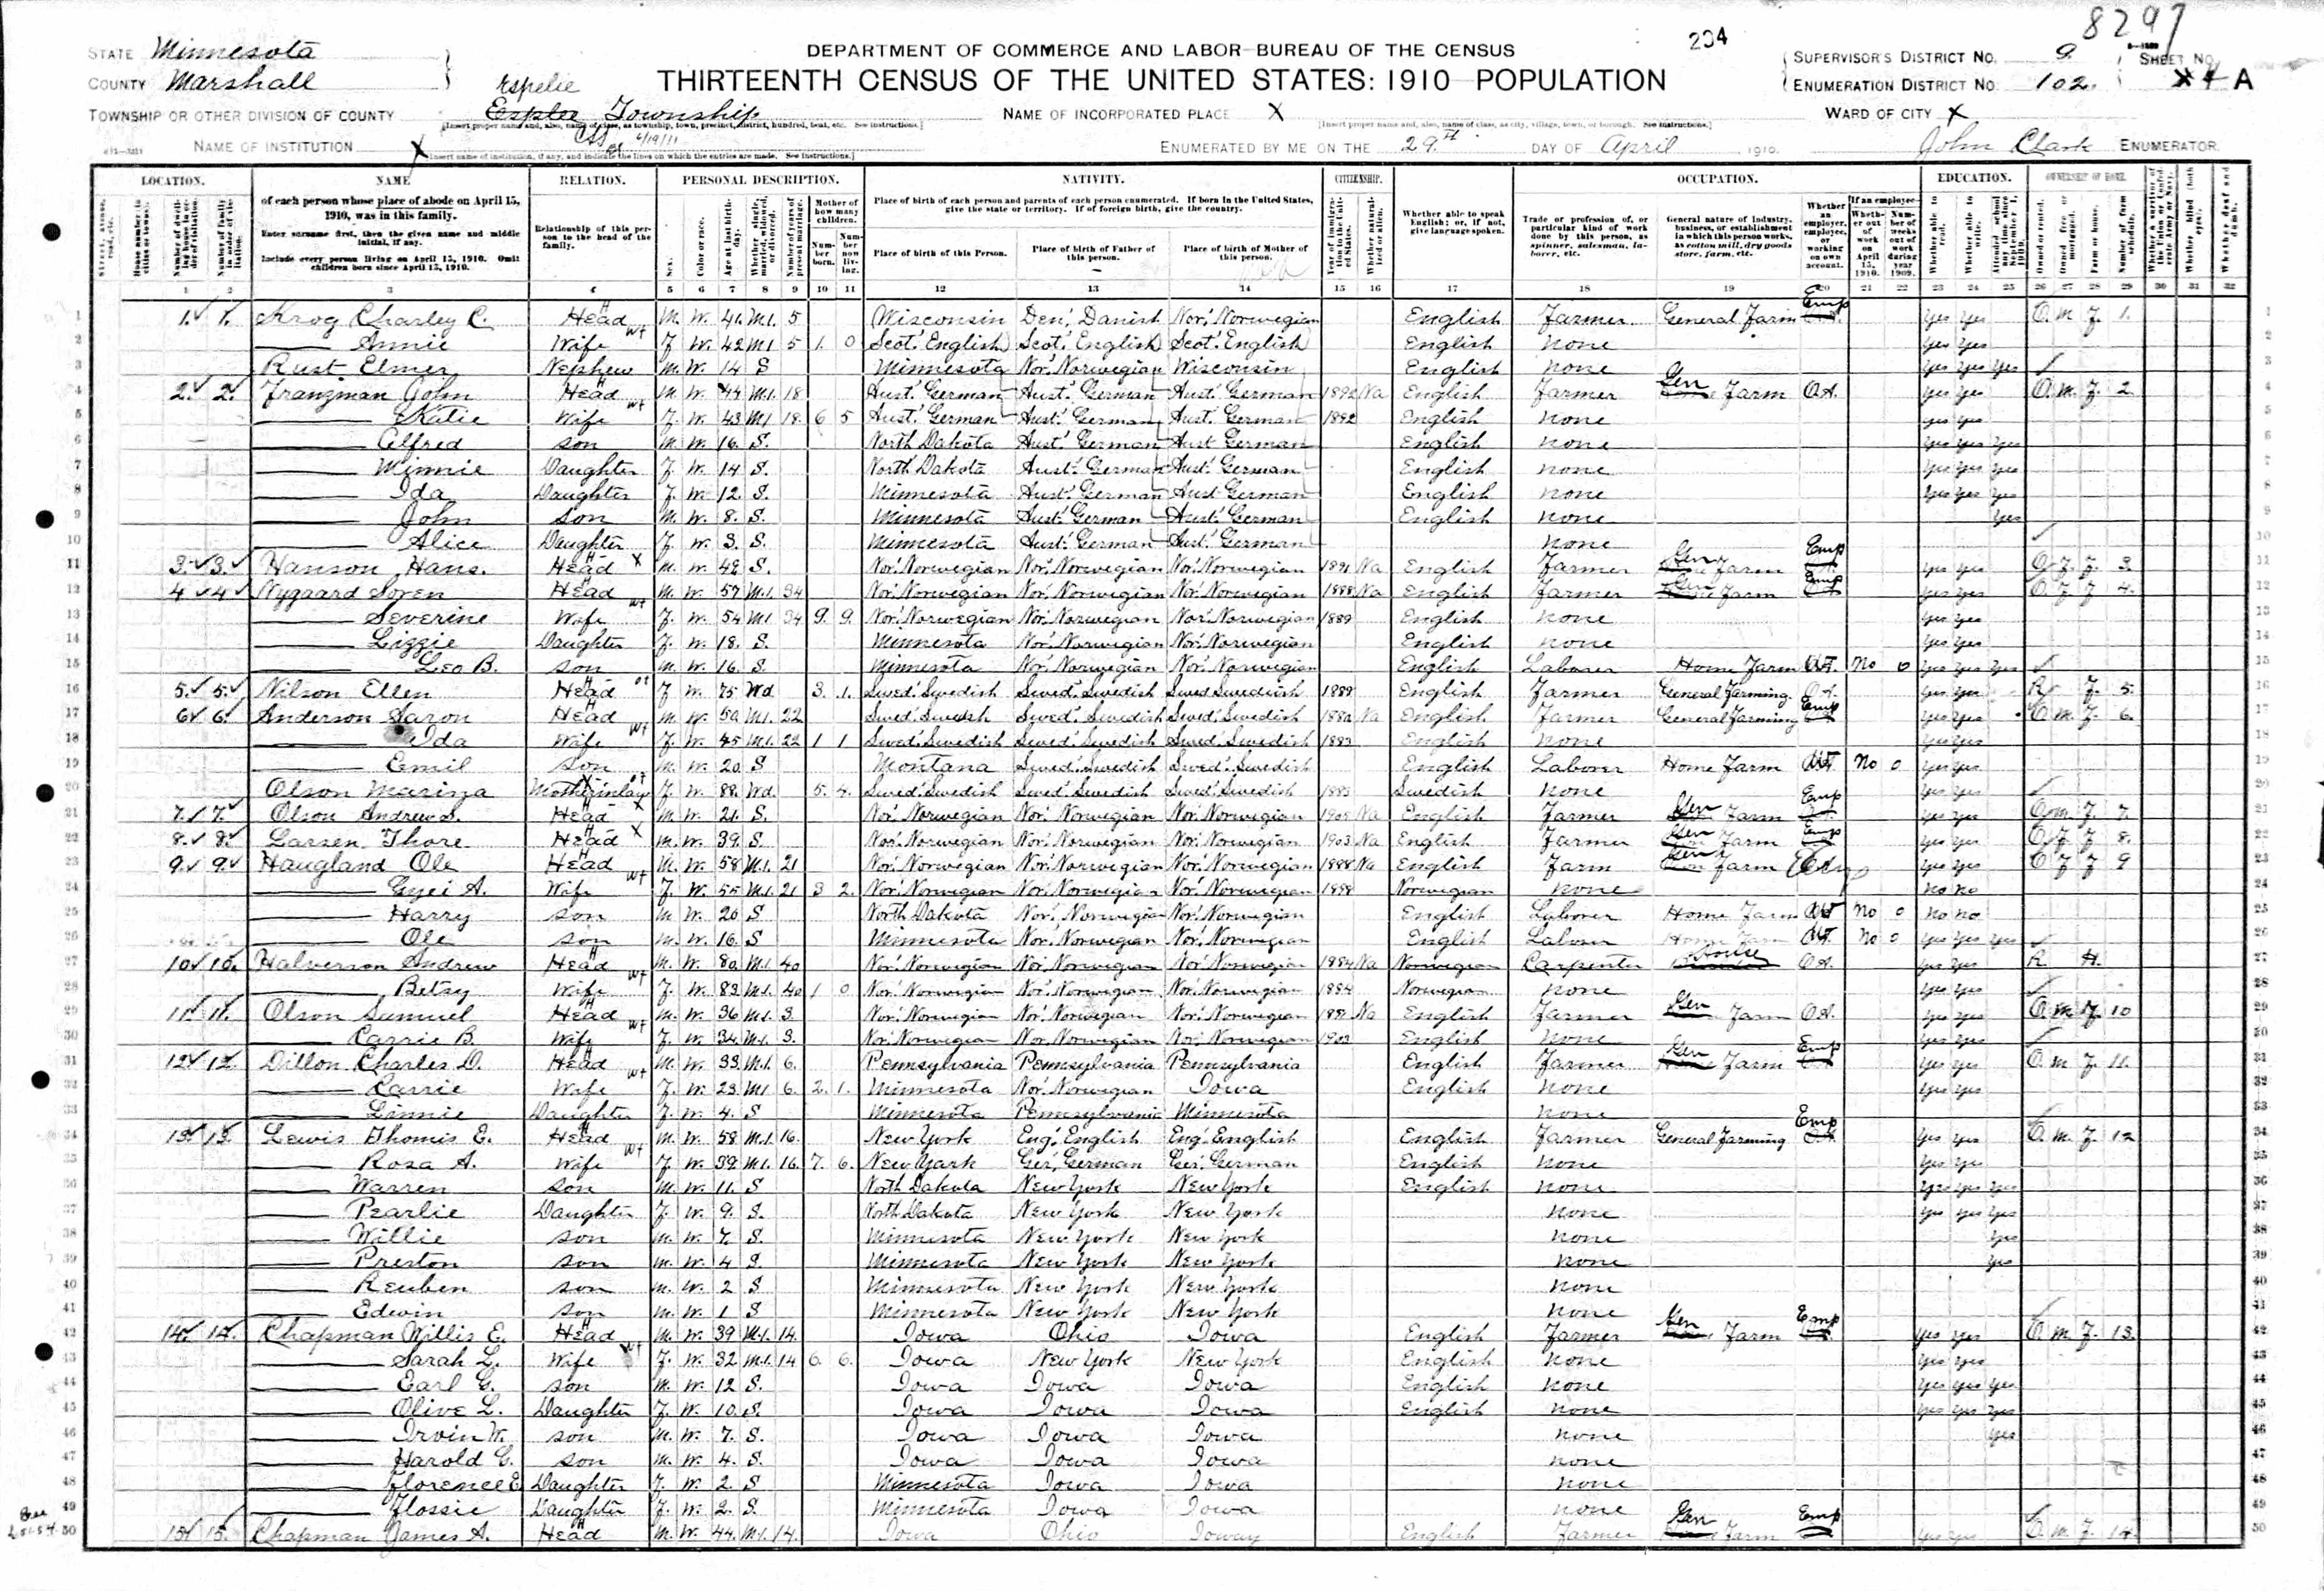 8297
204
STATE Minnesota
COUNTY Marshall
Espelie
TOWNSHIP OR OTHER DIVISION OF COUNTY Township
DEPARTMENT OF COMMERCE AND LABOR-BUREAU OF THE CENSUS
THIRTEENTH CENSUS OF THE UNITED STATES: 1910 POPULATION
SUPERVISOR'S DISTRICT NO. 9
ENUMERATION DISTRICT NO. 102
SHEET NO. 4 A
NAME OF INCORPORATED PLACE X
WARD OF CITY X
NAME OF INSTITUTION X
ENUMERATED BY ME ON THE 29th DAY OF April 1910. John Clark ENUMERATOR.
LOCATION. NAME RELATION. PERSONAL DESCRIPTION. NATIVITY. CITIZENSHIP. OCCUPATION. EDUCATION. OWNERSHIP OF HOME.
of each person whose place of abode on April 15, 1910, was in this family.
Enter surname first, then the given name and middle initial, if any.
Include every person living on April 15, 1910. Omit children born since April 15, 1910.
Relationship of this person to the head of the family.
Place of birth of each person and parents of each person enumerated. If born in the United States, give the state or territory. If of foreign birth, give the country.
Place of birth of this Person. Place of birth of Father of this person. Place of birth of Mother of this person.
Whether able to speak English; or, if not, give language spoken.
1 2 3 4 5 6 7 8 9 10 11 12 13 14 15 16 17 18 19 20 21 22 23 24 25 26 27 28 29 30 31 32
1 1. 1. Krog Charley C. Head M. W. 41. M1. 5 Wisconsin Den. Danish Nor. Norwegian English Farmer General Farm Emp yes yes O. M. F. 1.
2 Annie Wife F. W. 42 M1 5 1. 0 Scot. English Scot. English Scot. English English none yes yes
3 Rust Elmer Nephew M. W. 14 S Minnesota Nor. Norwegian Wisconsin English none yes yes yes
4 2. 2. Franzman John Head M W. 44 M1. 18 Aust. German Aust. German Aust. German 1892 Na English Farmer Gen Farm OA. yes yes O. M. F. 2.
5 Katie Wife F. W. 43 M1 18. 6 5 Aust. German Aust. German Aust. German 1892 English none yes yes
6 Alfred Son M. W. 16. S. North Dakota Aust. German Aust German English none yes yes yes
7 Minnie Daughter F. W. 14 S. North Dakota Aust. German Aust. German English none yes yes yes
8 Ida Daughter F. W. 12. S. Minnesota Aust. German Aust German English none yes yes yes
9 John Son M. W. 8. S. Minnesota Aust. German Aust. German English none yes
10 Alice Daughter F. W. 3. S. Minnesota Aust. German Aust. German none
11 3. 3. Hanson Hans. Head M. W. 48 S. Nor. Norwegian Nor. Norwegian Nor. Norwegian 1891 Na English Farmer Gen Farm Emp yes yes O. F. F. 3.
12 4 4 Nygaard Soren Head M. W. 57 M1. 34 Nor. Norwegian Nor. Norwegian Nor. Norwegian 1888 Na English Farmer Gen Farm Emp yes yes O F F 4.
13 Severine Wife F. W. 54 M1 34 9. 9. Nor. Norwegian Nor. Norwegian Nor. Norwegian 1889 English none yes yes
14 Lizzie Daughter F. W. 18. S. Minnesota Nor. Norwegian Nor. Norwegian English none yes yes
15 Leo B. Son M. W. 16. S Minnesota Nor. Norwegian Nor. Norwegian English Laborer Home Farm No 0 yes yes yes
16 5. 5. Nilson Ellen Head F W. 75 Wd 3. 1. Swed. Swedish Swed. Swedish Swed Swedish 1889 English Farmer General Farming OA. yes yes R F. 5.
17 6. 6. Anderson Aaron Head M. W. 50 M1. 22 Swed. Swedish Swed. Swedish Swed. Swedish 1882 Na English Farmer General Farming Emp yes yes O M. F. 6.
18 Ida Wife F. W. 45 M1. 22 1 1 Swed. Swedish Swed. Swedish Swed. Swedish 1883 English none yes yes
19 Emil Son M. W. 20 S Montana Swed. Swedish Swed. Swedish English Laborer Home Farm No 0 yes yes
20 Olson Motherinlaw F. W. 88. Wd. 5. 4. Swed. Swedish Swed. Swedish Swed. Swedish 1883 Swedish none yes yes
21 7. 7. Olson Andrew S. Head M. W. 21. S. Nor. Norwegian Nor. Norwegian Nor. Norwegian Na English Farmer Gen Farm Emp yes yes O M. F. 7.
22 8. 8. Larsen Thore Head M. W. 39. S. Nor. Norwegian Nor. Norwegian Nor. Norwegian 1903 Na English Farmer Gen Farm Emp yes yes O F F 8.
23 9. 9. Haugland Ole Head M. W. 58 M1. 21 Nor. Norwegian Nor. Norwegian Nor. Norwegian 1888 Na English Farm Gen Farm Emp yes yes O F F 9
24 Wife F. W. 55 M1. 21 3 2. Nor. Norwegian Nor. Norwegian Nor. Norwegian 1888 Norwegian none no no
25 Harry Son M W. 20 S. North Dakota Nor. Norwegian Nor. Norwegian English Laborer Home Farm No 0 no no
26 Ole Son M. W. 16. S Minnesota Nor. Norwegian Nor. Norwegian English Laborer Home Farm No 0 yes yes yes
27 10. 10. Halverson Andrew Head M. W. 80. M1. 40 Nor. Norwegian Nor. Norwegian Nor. Norwegian 1884 Na Norwegian Carpenter House OA. yes yes R. H.
28 Betsy Wife F. W. 83 M1. 40 1 0 Nor. Norwegian Nor. Norwegian Nor. Norwegian 1884 Norwegian none yes yes
29 11. 11. Olson Samuel Head M. W. 36 M1. 3. Nor. Norwegian Nor. Norwegian Nor. Norwegian Na English Farmer Gen Farm OA. yes yes O. M. F. 10
30 Carrie B. Wife F W. 34 M1. 3. Nor. Norwegian Nor. Norwegian Nor. Norwegian 1903 English none yes yes
31 12. 12. Dillon Charles D. Head M. W. 33 M1. 6. Pennsylvania Pennsylvania Pennsylvania English Farmer Gen Farm Emp yes yes O. M F. 11.
32 Carrie Wife F. W. 23 M1 6. 2. 1. Minnesota Nor. Norwegian Iowa English none yes yes
33 Linnie Daughter F. W. 4. S Minnesota Pennsylvania Minnesota none
34 13. 13. Lewis Thomis E. Head M. W. 58 M1. 16. New York Eng. English Eng. English English Farmer General Farming Emp yes yes O. M. F. 12
35 Rosa A. Wife F. W. 39. M1. 16. 7. 6. New York Ger. German Ger. German English none yes yes
36 Warren Son M. W. 11. S North Dakota New York New York English none yes yes yes
37 Pearlie Daughter F. W. 9. S. North Dakota New York New York none yes yes yes
38 Willie Son M. W. 7. S. Minnesota New York New York none yes
39 Preston Son M. W. 4 S. Minnesota New York New York none yes
40 Reuben Son M. W. 2 S Minnesota New York New York none
41 Edwin Son M. W. 1 S Minnesota New York New York none
42 14. 14. Chapman Willis E. Head M. W. 39 M1. 14. Iowa Ohio Iowa English Farmer Gen Farm Emp yes yes O. M. F. 13.
43 Sarah L. Wife F. W. 32 M1. 14 6. 6. Iowa New York New York English none yes yes
44 Earl G. Son M. W. 12 S. Iowa Iowa Iowa English none yes yes yes
45 Olive L. Daughter F. W. 10. S. Iowa Iowa Iowa English none yes yes yes
46 Irvin W. Son M. W. 7. S. Iowa Iowa Iowa none yes
47 Harold G. Son M. W. 4. S. Iowa Iowa Iowa none
48 Florence E Daughter F. W. 2. S Minnesota Iowa Iowa none
49 Flossie Daughter F. W. 2. S. Minnesota Iowa Iowa none
50 15. 15. Chapman James A. Head M. W. 44. M1. 14. Iowa Ohio Ioway English Farmer Gen Farm Emp yes yes O. M. F. 14.